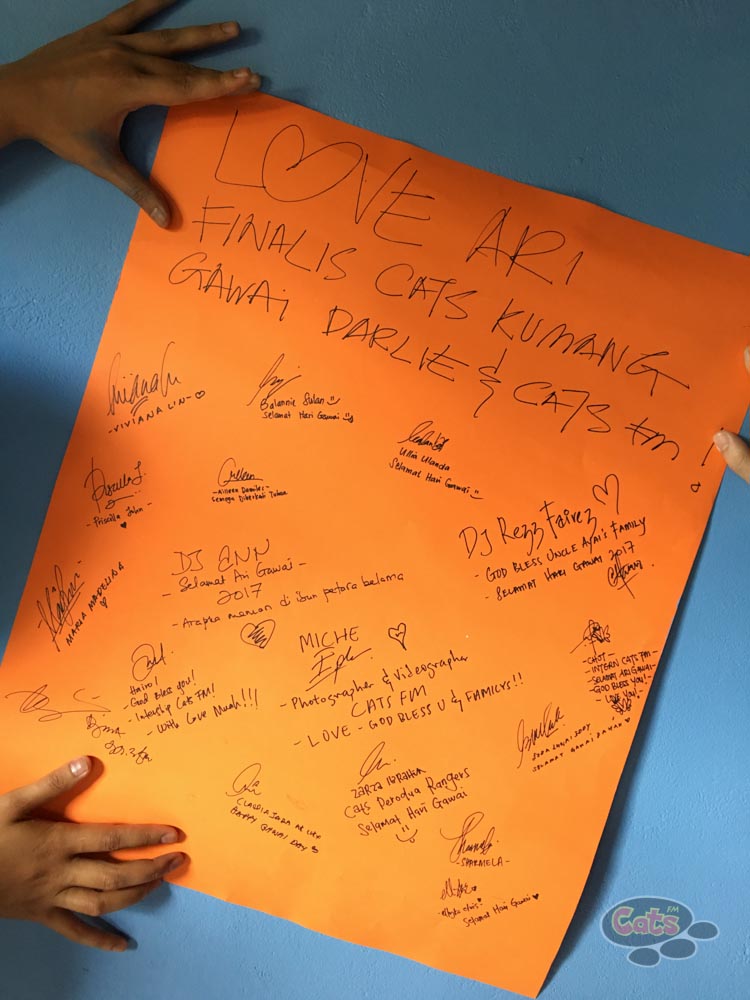 LOVE ARI
FINALIS CATS KUMANG
GAWAI DARLIE & CATS FM !
- VIVIANA LIN -
Balannie Sulan
Selamat Hari Gawai
Ullia Ulanda
Selamat Hari Gawai
- Priscilla John -
Semoga Diberkati Tuhan
DJ Rezz Fairez
- GOD BLESS UNCLE AYAI'S FAMILY
- SELAMAT HARI GAWAI 2017
DJ ENN
- Selamat Ari Gawai -
2017
- Arapka manan di ibun petara belama
MARIA MADELINA
Hairo!
- God Bless you!
- Internship Cats FM!
- With Love Muah!!!
MICHE
- Photographer & Videographer
CATS FM
- LOVE - GOD BLESS U & FAMILYS!!
- CHOT -
- INTERN CATS FM -
- SELAMAT ARI GAWAI -
- GOD BLESS YOU! -
- LOVE YOU! -
SELAMAT GAWAI DAYAK
ZARZA IBRAHIM
Cats Perodua Rangers
Selamat Hari Gawai
HAPPY GAWAI DAY
- SHARMELA -
Selamat Hari Gawai
Cats FM